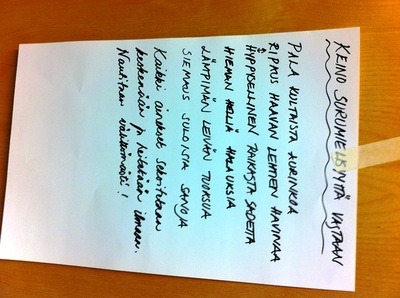 KEINO SURUMIELISYYTTÄ VASTAAN
PALA KULTAISTA AURINKOA
RIPAUS HAAVAN LEHTIEN HAVINAA
HYPPYSELLINEN RAIKASTA SADETTA
HIEMAN HELLIÄ HALAUKSIA
LÄMPIMÄN LEIVÄN TUOKSUA
SIEMAUS SULOISIA SANOJA
Kaikki ainekset sekoitetaan
keskenään ja heitetään ilmaan.
Nautitaan välittömästi!